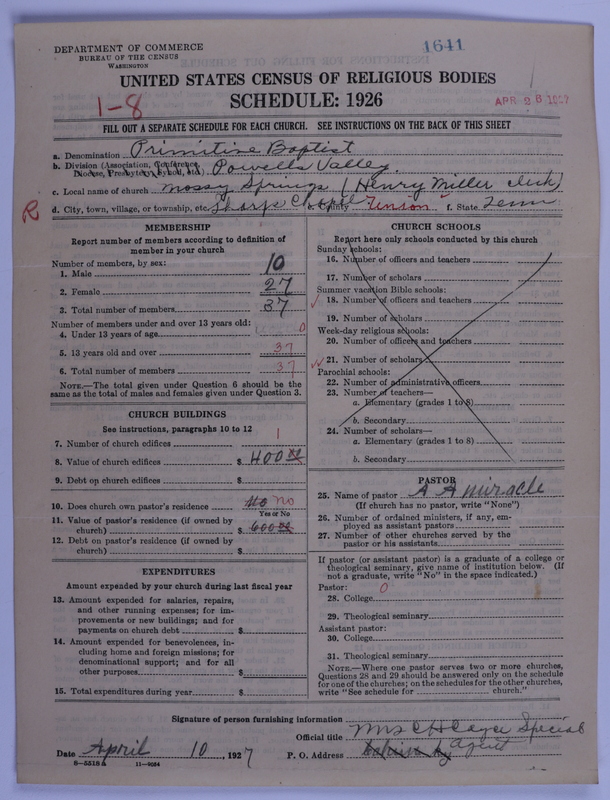 DEPARTMENT OF COMMERCE
BUREAU OF THE CENSUS
WASHINGTON
1641
UNITED STATES CENSUS OF RELIGIOUS BODIES
1-8
SCHEDULE: 1926
APR 26 1927
FILL OUT A SEPARATE SCHEDULE FOR EACH CHURCH. SEE INSTRUCTIONS ON THE BACK OF THIS SHEET
a. Denomination Primitive Baptist
b. Division (Association, Conference, Diocese, Presbytery, Synod, etc.) Powells Valley
c. Local name of church Mossy Springs (Henry Miller clerk)
R d. City, town, village, or township, etc. Sharps Chapel e. County Union f. State Tenn
MEMBERSHIP
Report number of members according to definition of
member in your church
Number of members, by sex:
1. Male 10
2. Female 27
3. Total number of members 37
Number of members under and over 13 years old:
4. Under 13 years of age 0
5. 13 years old and over 37
6. Total number of members 37
NOTE.—The total given under Question 6 should be the
same as the total of males and females given under Question 3.
CHURCH BUILDINGS
See instructions, paragraphs 10 to 12
7. Number of church edifices 1
8. Value of church edifices $ 400 00
9. Debt on church edifices $
10. Does church own pastor's residence No No
Yes or No
11. Value of pastor's residence (if owned by
church) $ 600 00
12. Debt on pastor's residence (if owned by
church) $
EXPENDITURES
Amount expended by your church during last fiscal year
13. Amount expended for salaries, repairs,
and other running expenses; for im-
provements or new buildings; and for
payments on church debt $
14. Amount expended for benevolences, in-
cluding home and foreign missions; for
denominational support; and for all
other purposes $
15. Total expenditures during year $
CHURCH SCHOOLS
Report here only schools conducted by this church
Sunday schools:
16. Number of officers and teachers
17. Number of scholars
Summer vacation Bible schools:
18. Number of officers and teachers
19. Number of scholars
Week-day religious schools:
20. Number of officers and teachers
21. Number of scholars
Parochial schools:
22. Number of administrative officers
23. Number of teachers—
a. Elementary (grades 1 to 8)
b. Secondary
24. Number of scholars—
a. Elementary (grades 1 to 8)
b. Secondary
PASTOR
25. Name of pastor A A Miracle
(If church has no pastor, write "None")
26. Number of ordained ministers, if any, em-
ployed as assistant pastors
27. Number of other churches served by the
pastor or his assistants
If pastor (or assistant pastor) is a graduate of a college or
theological seminary, give name of institution below. (If
not a graduate, write "No" in the space indicated.)
Pastor: 0
28. College
29. Theological seminary
Assistant pastor:
30. College
31. Theological seminary
NOTE.—Where one pastor serves two or more churches,
Questions 28 and 29 should be answered only on the schedule
for one of the churches; on the schedules for the other churches,
write "See schedule for church."
Signature of person furnishing information
Official title Mrs C H Cayce Special
Date April 10, 1927 P. O. Address Agent
8—5518a 11—9054